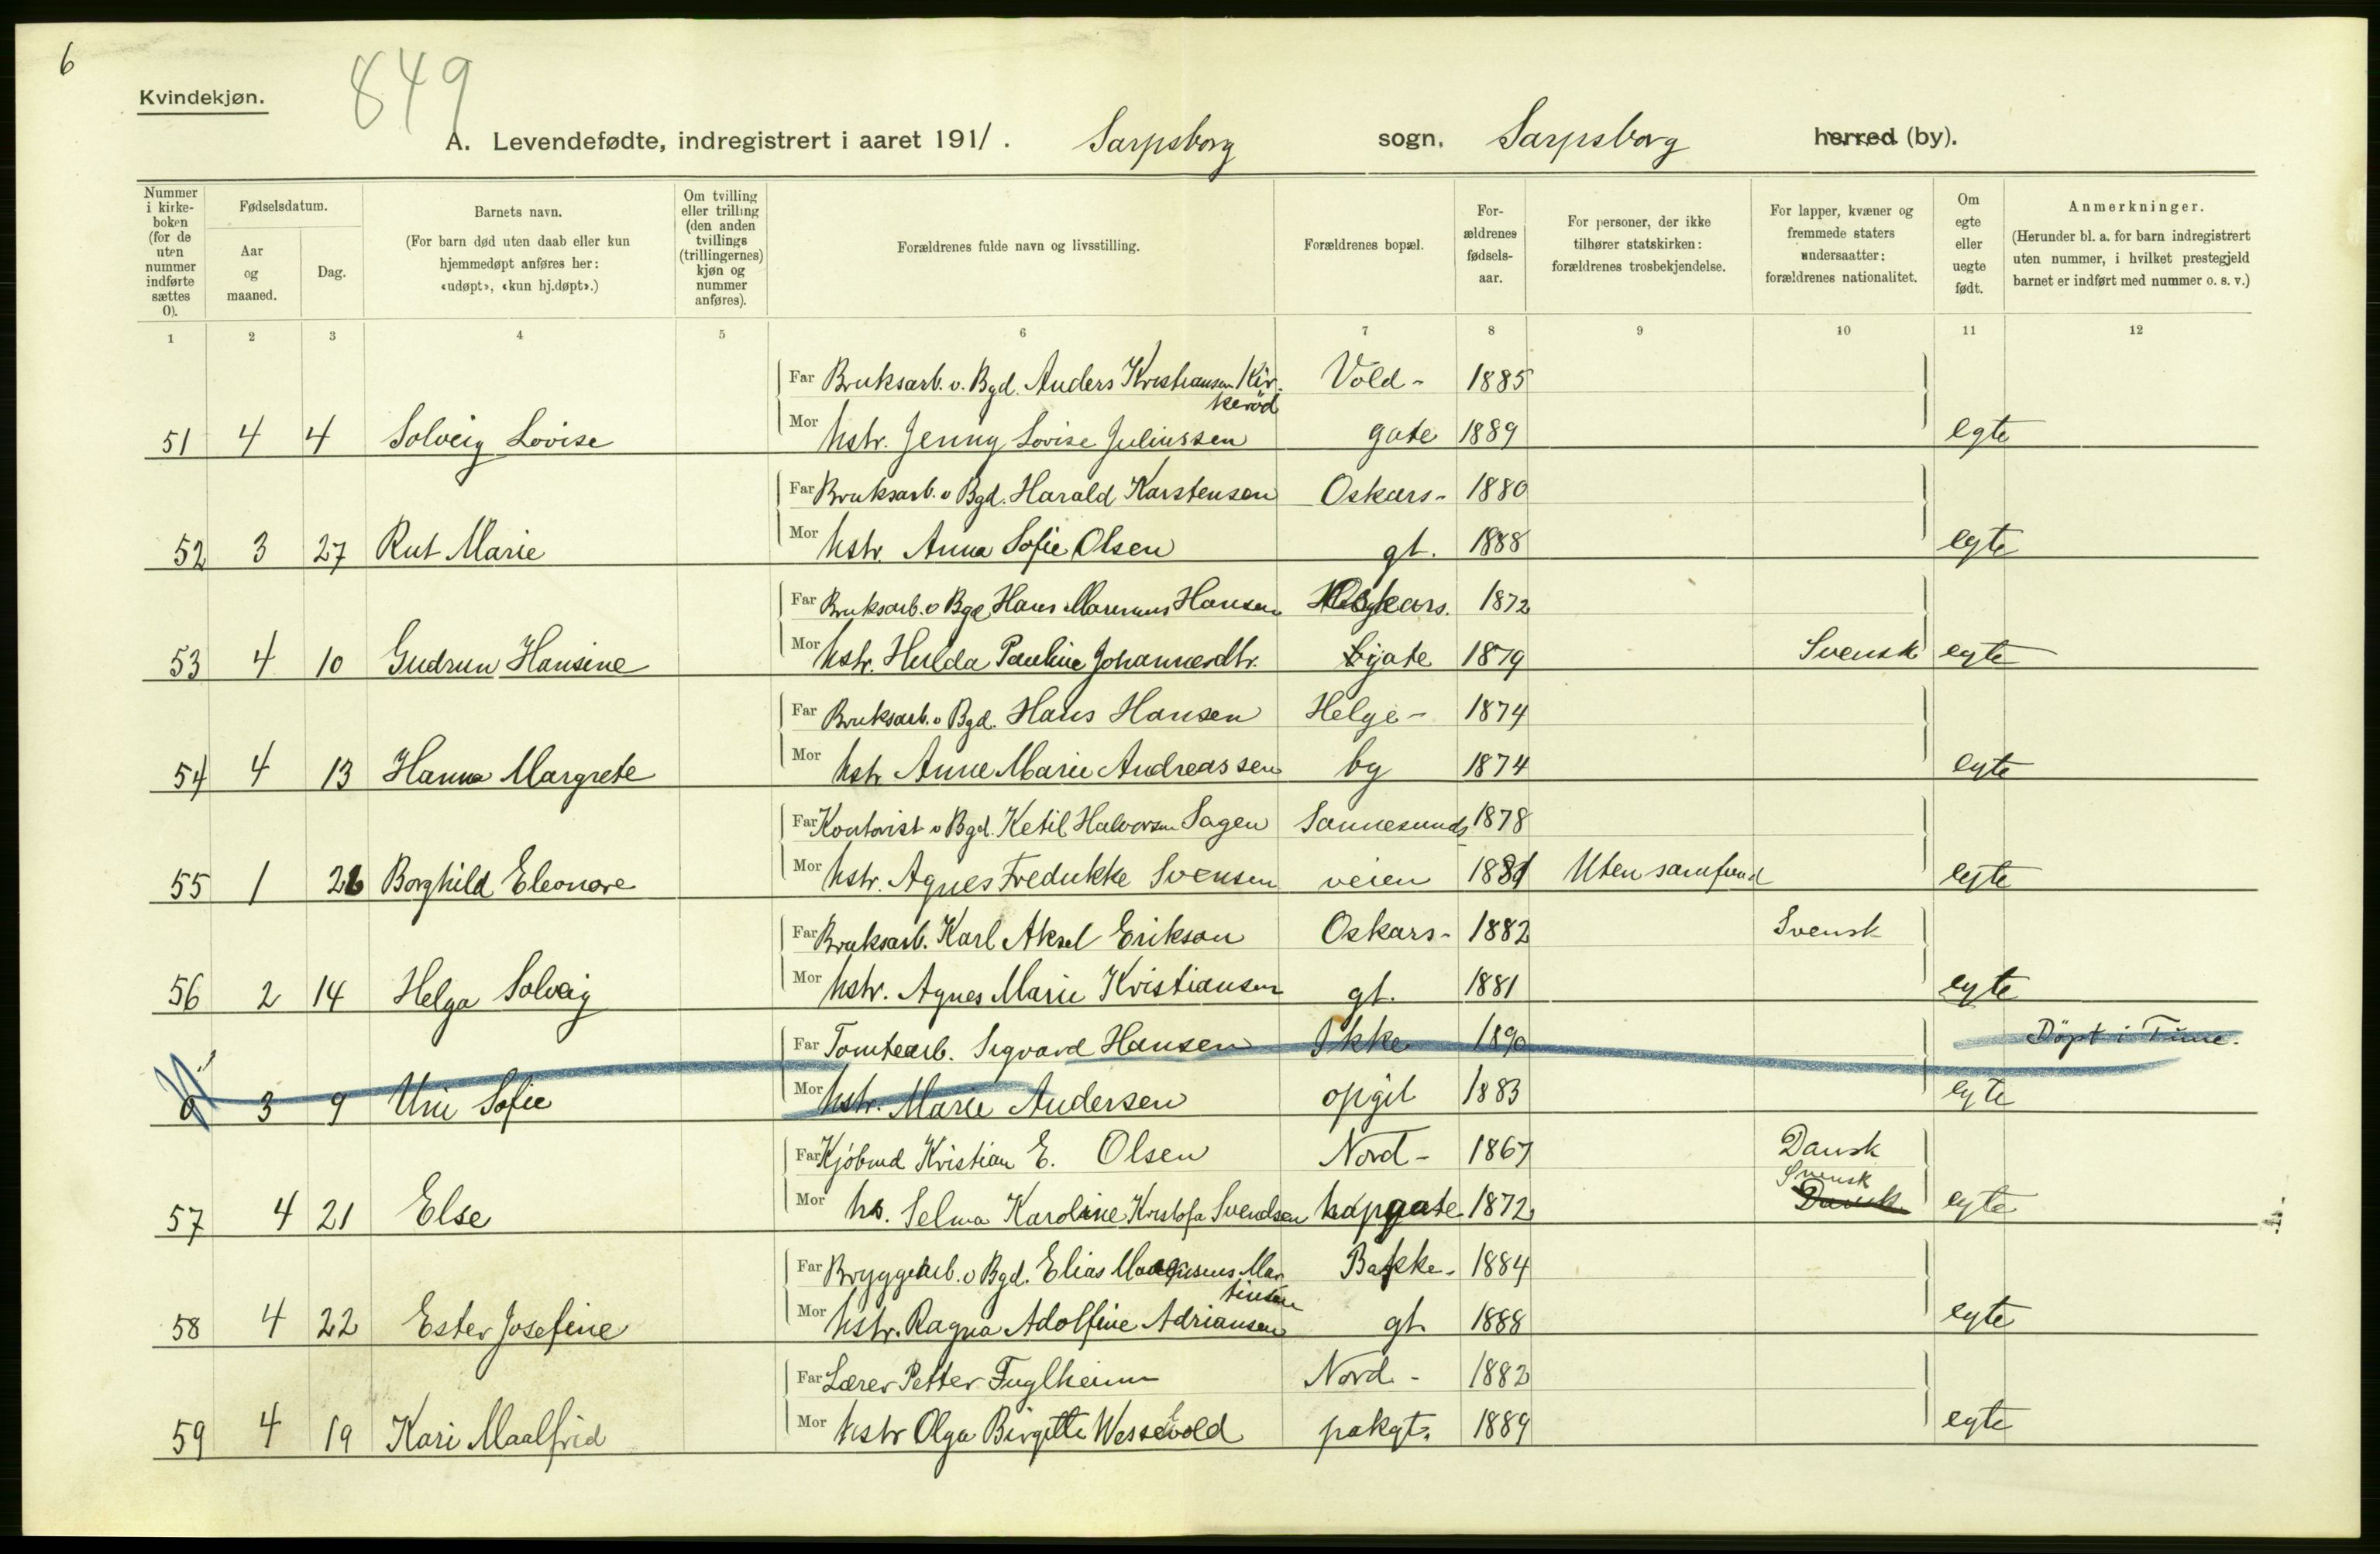 6
Kvindekjøn.
849
A. Levendefødte, indregistrert i aaret 1911. Sarpsborg sogn, Sarpsborg herred (by).
Nummer i kirkeboken (for de uten nummer indførte sættes 0).
Fødselsdatum.
Aar og maaned.
Dag.
Barnets navn.
(For barn død uten daab eller kun hjemmedøpt anføres her: «udøpt», «kun hj.døpt».)
Om tvilling eller trilling (den anden tvillings (trillingernes) kjøn og nummer anføres).
Forældrenes fulde navn og livsstilling.
Forældrenes bopæl.
Forældrenes fødselsaar.
For personer, der ikke tilhører statskirken: forældrenes trosbekjendelse.
For lapper, kvæner og fremmede staters undersaatter: forældrenes nationalitet.
Om egte eller uegte født.
Anmerkninger.
(Herunder bl. a. for barn indregistrert uten nummer, i hvilket prestegjeld barnet er indført med nummer o. s. v.)
1 2 3 4 5 6 7 8 9 10 11 12
Far Bruksarb. v. Bgd. Anders Kristiansen Kirkerød Vold- 1885
51 4 4 Solveig Lovise Mor hstr. Jenny Lovise Juliussen gate 1889 egte
Far Bruksarb. v Bgd. Harald Karstensen Oskars- 1880
52 3 27 Rut Marie Mor hstr. Anna Sofie Olsen gt. 1888 egte
Far Bruksarb. v Bgd Hans Hansen Oskars. 1872
53 4 10 Gudrun Hansine Mor hstr. Hulda Pauline Johannesdtr. gate 1879 Svensk egte
Far Bruksarb. v Bgd. Hans Hansen Helge- 1874
54 4 13 Hanna Margrete Mor hstr Anne Marie Andreassen by 1874 egte
Far Kontorist v Bgd. Ketil Halvorsen Sagen Sannesunds 1878
55 1 26 Borghild Eleonore Mor hstr. Agnes Fredrikke Svensen veien 1881 Uten samfund egte
Far Bruksarb. Karl Aksel Erikson Oskars- 1882 Svensk
56 2 14 Helga Solveig Mor hstr. Agnes Marie Kristiansen gt. 1881 egte
Far Tomtearb. Sigvard Hansen Ikke 1890 Döpt i Tune.
0 3 9 Uni Sofie Mor hstr. Marie Andersen opgit 1883 egte
Far Kjöbmd Kristian E. Olsen Nord- 1867 Dansk
Svensk
57 4 21 Else Mor hs. Selma Karoline Kristofa Svendsen kapgate 1872 Dansk egte
Far Bryggearb. v Bgd. Elias Magnus Martinsen Bakke- 1884
58 4 22 Ester Josefine Mor hstr. Ragna Adolfine Adriansen gt. 1888 egte
Far Lærer Petter Fuglheim Nord- 1882
59 4 19 Kari Maalfrid Mor hstr Olga Birgitte Wessevold pakgt. 1889 egte